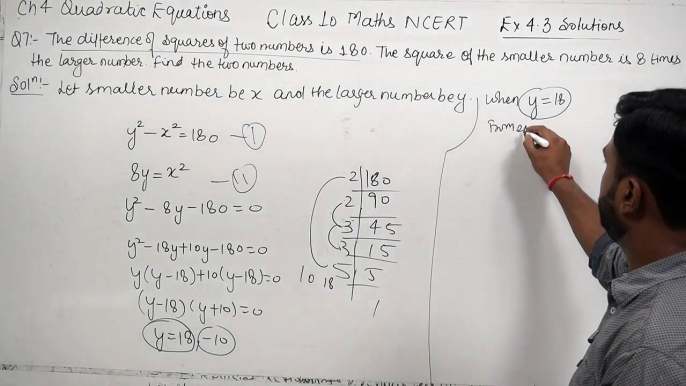 Ch4 Quadratic Equations Class 10 Maths NCERT Ex 4.3 Solutions
Q7:- The difference of squares of two numbers is 180. The square of the smaller number is 8 times
the larger number. find the two numbers.
Solⁿ:- Let smaller number be x and the larger number be y.
y² - x² = 180 — (1)
8y = x² — (11)
y² - 8y - 180 = 0
y² - 18y + 10y - 180 = 0
y(y - 18) + 10(y - 18) = 0
(y - 18) (y + 10) = 0
y = 18, -10
2 | 180
2 | 90
3 | 45
3 | 15
5 | 5
1
10 18
When y = 18